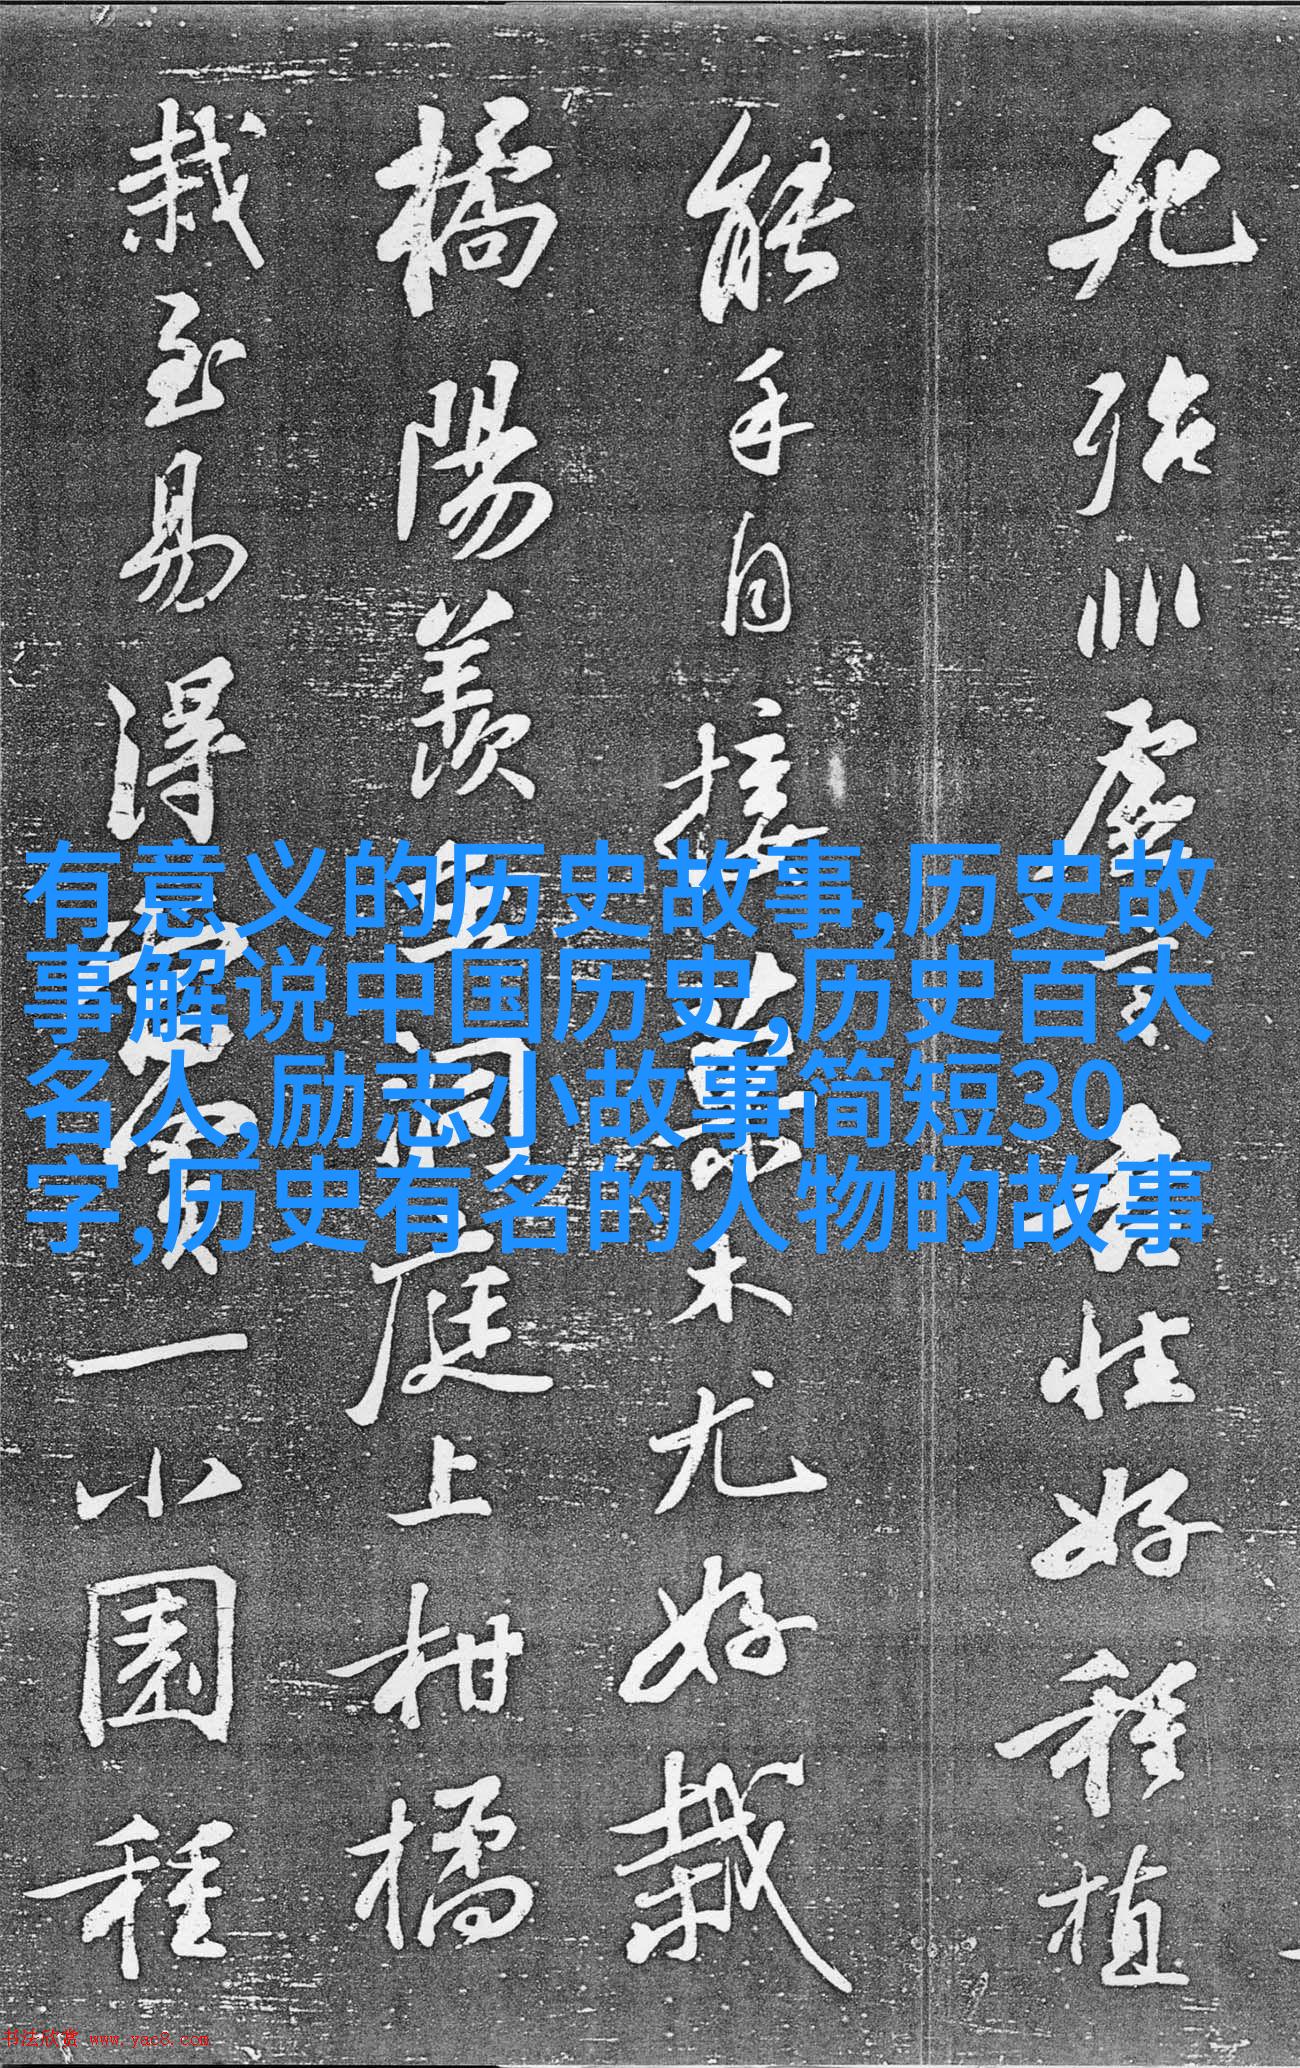 死殆非虚言吾性好種植
能手自接菓木尤好栽
橘陽羨在洞庭上柑橘
栽至易得當買一小園種
有意义的历史故事,历史故
事解说中国历史,历史百大
名人,励志小故事简短30
字,历史有名的人物的故事
书法欣赏 www.yac8.com